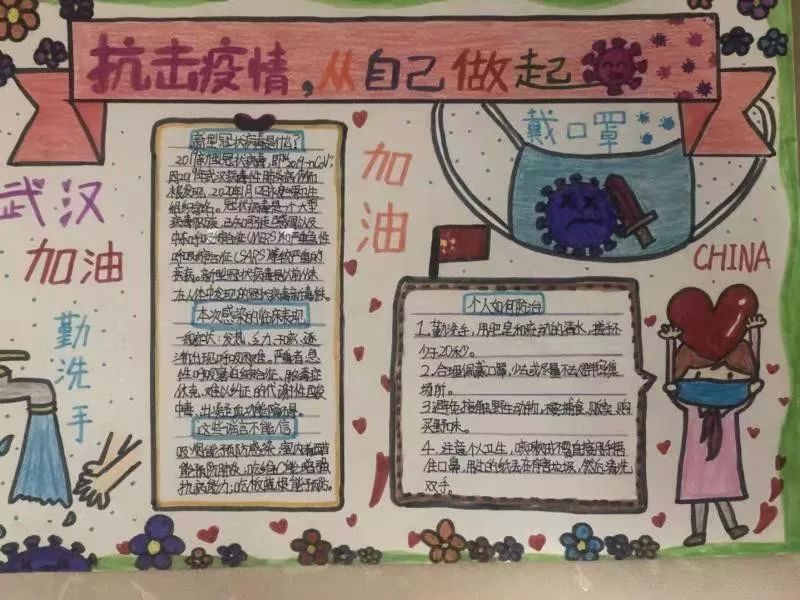 抗击疫情,从自己做起
戴口罩
武汉
加油
勤洗手
加油
CHINA
新型冠状病毒是什么?
组织命名。冠状病毒是一个大型
病毒家族,已知可引起感冒以及
中东呼吸综合征(MERS)和严重急性
呼吸综合征(SARS)等较严重的
疾病。新型冠状病毒是以前从未
在人体中发现的冠状病毒新毒株。
本次感染的临床表现
一般症状:发热、乏力、干咳、逐
渐出现呼吸困难,严重者:急
性呼吸窘迫综合征、脓毒症
休克、难以纠正的代谢性酸
中毒,出凝血功能障碍。
这些谣言不能信
吸烟能预防感染,室内有醋
能预防肺炎,吃维C能增强
抗病能力,吃板蓝根能预防。
个人如何防治
1.勤洗手,用肥皂和流动的清水,搓手不
少于20秒。
2.合理佩戴口罩,少去或尽量不去人群密集
场所。
3.避免接触野生动物,不要捕食、贩卖、购
买野味。
4.注意个人卫生,咳嗽或不要直接用手捂
住口鼻,用过的纸丢在有害垃圾,然后清洗
双手。